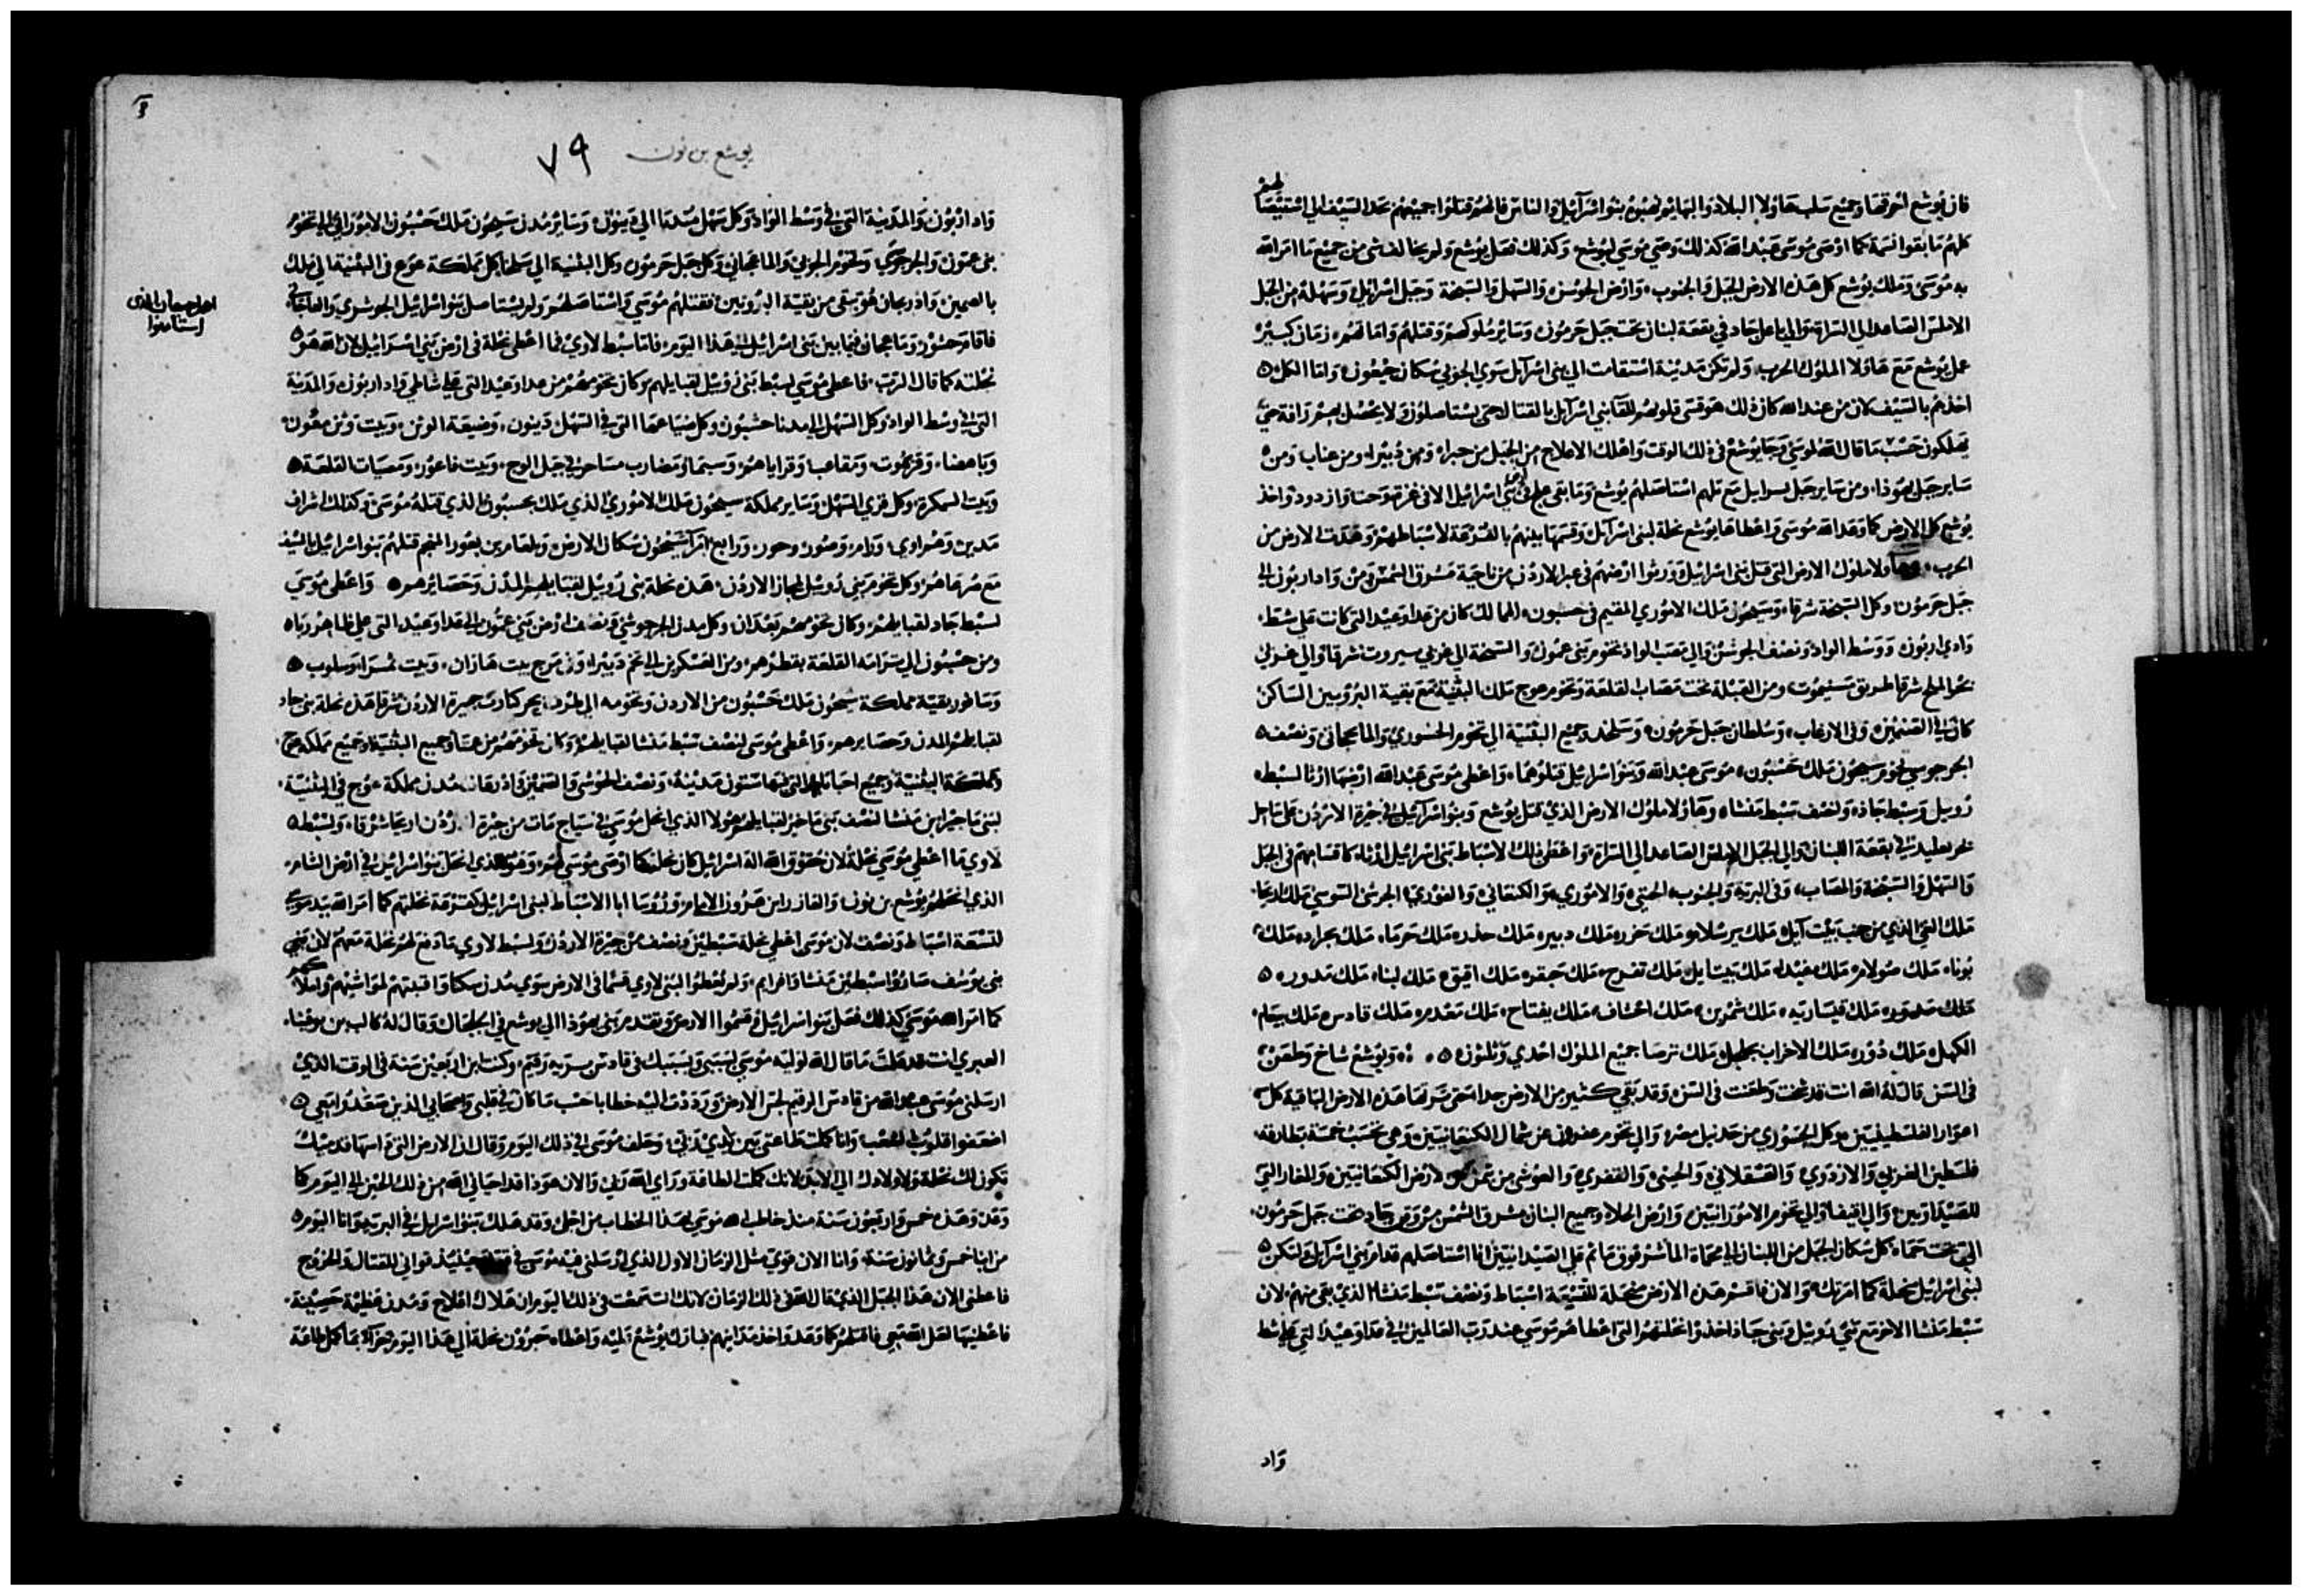 فان يوشع احرقها وجميع سلب هاولا البلاد والبهايم نهبوه بنوا اسرآئيل والناس فانهم قتلوا جميعهم بحد السيف الي
كلهم ما بقوا نسمة كما اوصى موسى عبد الله كذلك وصي موسي ليوشع وكذلك فعل يوشع ولم يخالف شي من جميع ما امر الله
به موسى وملك يوشع كل هذه الارض الجبل والجنوب وارض الجوسن والسهل والسبخة وجبل اسرائيل وسهله من الجبل
الاملس الصاعد الي السراة والي باعل جاد في بقعة لبنان تحت جبل حرمون وساير ملوكهم وقتلهم واماتهم زمان كبير
عمل يوشع مع هاولا الملوك الحرب ولم تكن مدينة استقامت الي بني اسرآئل سوي الجوي سكان جبعون واما الكل
اخذهم بالسيف لان من عند الله كان ذلك هو قسى قلوبهم للقا بني اسرآيل بالقتال حتى يستاصلوا ولا يحصل لهم رافة حتى
يهلكون حسب ما قال الله لموسي وجا يوشع في ذلك الوقت واهلك الاعلاج من الجبل من حبرا ومن دبيرا ومن عناب ومن
ساير جبل يهوذا ومن ساير جبل اسرايل مع تلهم استاصلهم يوشع وما بقي علج في بني اسرائيل الا في غزة وحتا وازدود واخذ
يوشع كل الارض كما وعد الله موسى واعطاها يوشع نحلة لبني اسرآئل وقسمها بينهم بالقرعة لاسباطهم وهدت الارض من
الحرب وهاولا ملوك الارض التي قتل بني اسرائيل وورثوا ارضهم في عبر الاردن من ناحية مشرق الشمس من واد اربون الى
جبل حرمون وكل السبخة شرقا وسيحون ملك الاموري المقيم في حسبون المالك كان من عداوعيد التي كانت على شط
وادي اربون ووسط الواد ونصف الجوشن والي يعبب الواد تخوم بني عمون والسبخة الى
بحر الملح شرقا طريق بيسيموت ومن القبلة تحت مصاب القلعة وتخوم عوج ملك البثنية مع بقية البروبين الساكن
كان في القنيمين وفي الارعاب وسلطان جبل حرمون وسلخد وجميع البثنية الي تخوم الجسوري والماعجاني ونصف
الجرجوسي تخوم سيحون ملك حسبون موسى عبد الله وبنو اسرائيل قتلوهما واعطى موسى عبد الله ارضهما ارثا لسبط
روبيل وسبط جاد ولنصف سبط منشا وهاولا ملوك الارض الذي قتل يوشع وبنوا اسرآئيل في جيزة الاردن على ساحل
بحر بعليد في بقعة اللبنان والي الجبل الاملس الصاعد الي السراة واعطى ذلك لاسباط بني اسرائيل ارثا كما قسامهم في الجبل
والسهل والسبخة والمصاب وفي البرية والجنوب الحتي والاموري والكنعاني والفوري الجرشي اليبوسي ملك اريحا
ملك العي الذي من جنب بيت آيل ملك يرشلام ملك حبره ملك دبيره ملك حدده ملك حرما ملك بحراده ملك
بوناه ملك عولام ملك عبدله ملك بيتايل ملك تفوح ملك حيفره ملك افيق ملك لبناه ملك مدوره
ملك حصوره ملك قيساريه ملك شمرين ملك اخشاف ملك يفتاح ملك مقدره ملك قادس ملك بيعام
الكهل ملك دوره ملك الاحزاب بجلجل ملك ترصا جميع الملوك احدي وثلثون ويوشع شاخ وطعن
في السن قال له الله انت قد شخت وطعنت في السن وقد بقي كثير من الارض جدا حتى ترثها هذه الارض الباقية كل
اعوار الفلسطينيين وكل الجسوري من حد نيل مصر والي تخوم عقرون عن شمال الكنعانيين وهي تحسب خمسة بطارقة
فلسطين الغزي والازدودي والعسقلاني والجيتي والعقري والعوضي من تيمن لارض الكنعانيين والمغار التي
للصيدانيين والي افيقا والي تخوم الامورانيين وارض الحلاد وجميع اللبنان مشرق الشمس من جاد تحت جبل حرمون
الى تحت حماة كل سكان الجبل من اللبنان الى حماة الما شرفوق ماثم على الصيدانيين انا استاصلهم قدام بني اسرآئل ولتكن
لبني اسرائيل نحلة كما امرتك والان فاقسم هذه الارض منحلة للتسعة اسباط ونصف سبط منشا الذي بقي منهم لان
سبط منشا الاخر مع بني روبيل وبني جاد اخذوا نحلتهم التي اعطاهم موسى عند رب العالمين في عداوعيد التي على شط
واد
يوشع بن نون ٧٩
واد اربون والمدينة التي في وسط الواد وكل سهل ميدبا الي ديبون وساير مدن سيحون ملك حسبون الاموراني الى تخوم
بني عمون والجرجوي وتخوم الجوبي والماعجاني وكل جبل حرمون وكل البثنية الي سلخا كل مملكة عوج في البثنية الي ملك
بالصمين واذرعان هو بقي من بقية البروبين فقتلهم موسي واستاصلهم ولم يستاصل بنو اسرائيل الجوشري والماعجاني
فاقام جشور وماعجان فيما بين بني اسرائيل الى هذا اليوم فاما سبط لاوي فما اعطى نحلة في ارض بني اسرائيل لان الله هو
نحلته كما قال الرب فاعطى موسي لسبط بني روبيل لقبايلهم وكان تخومهم من عداوعيد التي على شاطي واد اربون والمدينة
التي في وسط الواد وكل السهل الى مدنا حشبون وكل ضياعها التي في السهل دينون وضيعة الوثن وبيت وثن معون
وياهصا وقريموت ومقاعب وقرايا هنو وسيما ومضارب مساحر في جبل الوج وبيت فاعور ومصبات القلعة
وبيت السمكرة وكل قري السهل وساير مملكة سيحون ملك الاموري الذي ملك بحسبون الذي قتله موسى وكذلك اشراف
مدين وهراوي ورام وصون وحور ورابع امرآ سيحون سكان الارض وبلعام بن بعور المنجم قتلهم بنو اسرائيل بالسيف
مع صرعاهم وكل تخوم بني روبيل لجاز الاردن هذه نحلة بني روبيل لقبايلهم المدن وحصايرهم واعطى موسى
لسبط جاد لقبايلهم وكان تخومهم بعدان وكل مدن الجرجوشي ونصف ارض بني عمون الى عداوعيد التي على ظاهر رباه
ومن حسبون الي ترامه القلعة بقطرهم ومن العسكرين الى تخم دبيرا وفي مرج بيت هاران وبيت نمرا وسلوب
وسافور بقية مملكة سيحون ملك حسبون من الاردن وتخومه الي طرف بحر كنارت جيزة الاردن شرقا هذه نحلة بني جاد
لقبايلهم المدن وحصايرهم واعطى موسى لنصف سبط منشا لقبايلهم وكان تخومهم من محنا وجميع البثنية وجميع مملكة عوج
مملكة البثنية وجميع احيا يايرا التي فيها ستون مدينة ونصف الجوشن والصنمين واذرعان مدن مملكة عوج في البثنية
لبني ماخير ابن منشا لنصف بني ماخير لقبايلهم هولا الذي انحل موسي في سياج مات من جيزة الاردن اريحا شرقا ولسبط
لاوي ما اعطي موسي نحلة لان حقوق الله اله اسرائيل كان نحلتهم كما اوصى موسي لهم وهو الذي انحل بنوا اسرائيل في ارض الشام
الذي انحلهم يوشع بن نون والعازر ابن هرون الامام وروسا ابا الاسباط لبني اسرائيل كقرعة نحلتهم كما امر الله بيد موسى
للتسعة اسباط ونصف لان موسى اعطي نحلة سبطين ونصف من جيزة الاردن ولسبط لاوي ما دفع لهم نحلة معهم لان بني
بني يوسف صاروا سبطين منشا وافرايم ولم يعطوا لبني لاوي قسما في الارض سوي مدن سكنا وافنيتهم لمواشيهم واملاكهم
كما امر الله موسي كذلك فعل بنو اسرائيل وقسموا الارض وتقدم بني يهوذا الي يوشع في الجلجال وقال له كالب بن يوفنا
العبري انت قد علمت ما قال الله لوليه موسى بسببي وبسببك في قادس برية رقيم وكنت ابن اربعين سنة في الوقت الذي
ارسلني موسى عبد الله من قادس الرقيم لجس الارض ورددت اليه خطابا حسب ما كان في قلبي واصحابي الذين صعدوا معي
اضعفوا قلوب الشعب وانا كملت طاعتي بين يدي ربي وحلف موسى في ذلك اليوم وقال ان الارض التي داسها قدميك
تكون لك نحلة ولاولادك الي الابد لانك كملت الطاقة وراي الله ربي والان هوذا قد احياني الله من ذلك الحين الى اليوم كما
وعد وهذه خمس واربعون سنة منذ خاطب الله موسي بهذا الخطاب من اجلي وقد هلك بنوا اسرائيل في البرية وانا اليوم
من ابنا خمس وثمانون سنة وانا الان قوي مثل الزمان الاول الذي ارسلني فيه موسى في حينئذ قواني للقتال والخروج
فاعطني الان هذا الجبل الذي قال الله في ذلك الزمان لانك استمعت في ذلك اليوم ان هناك اعلاج ومدن عظيمة حصينة
فاعطنيها لعل الله معي فاقتلهم كما وعد واخذ مداينهم فبارك يوشع عليه واعطاه حبرون نحلة الي هذا اليوم جزآ لما كمل طاعة